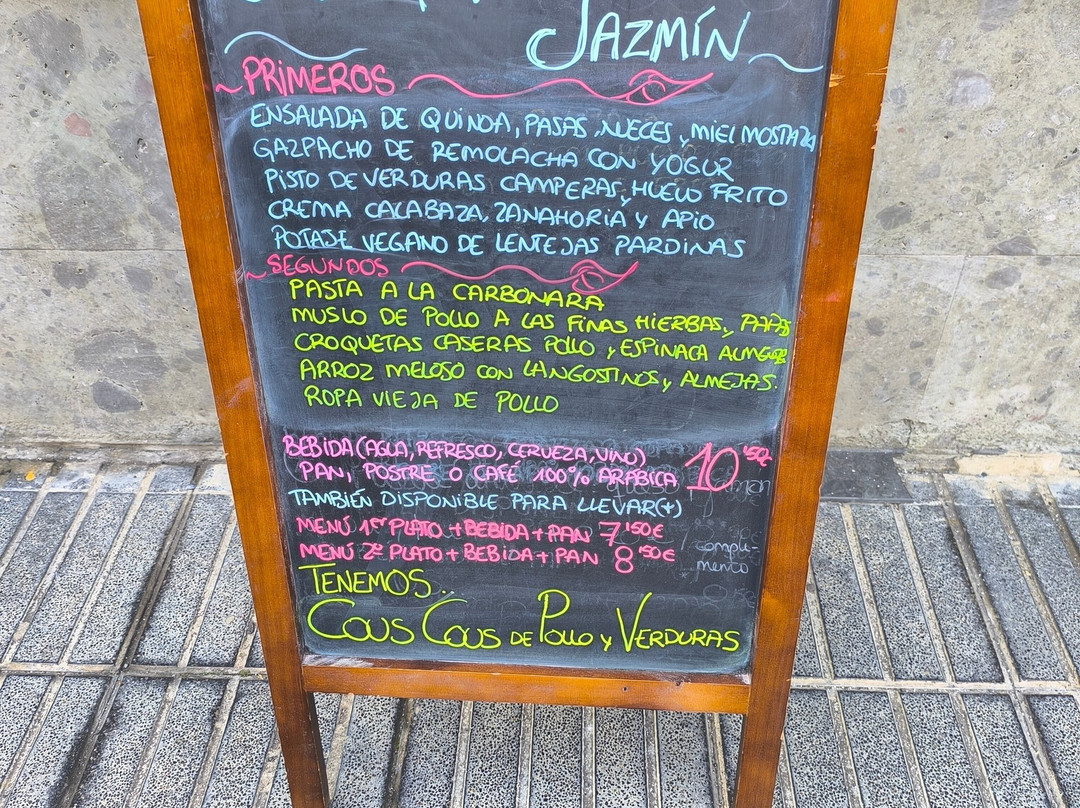 JAZMÍN
PRIMEROS
ENSALADA DE QUINOA, PASAS, NUECES y MIEL MOSTAZA
GAZPACHO DE REMOLACHA CON YOGUR
PISTO DE VERDURAS CAMPERAS y HUEVO FRITO
CREMA CALABAZA, ZANAHORIA Y APIO
POTAJE VEGANO DE LENTEJAS PARDINAS
SEGUNDOS
PASTA A LA CARBONARA
MUSLO DE POLLO A LAS FINAS HIERBAS y PAPAS
CROQUETAS CASERAS POLLO y ESPINACA
ARROZ MELOSO CON LANGOSTINOS y ALMEJAS.
ROPA VIEJA DE POLLO
BEBIDA (AGUA, REFRESCO, CERVEZA, VINO)
PAN, POSTRE O CAFÉ 100% ARABICA 10'50€
TAMBIÉN DISPONIBLE PARA LLEVAR (+)
MENÚ 1er PLATO + BEBIDA + PAN 7'50€
MENÚ 2º PLATO + BEBIDA + PAN 8'50€
COMPLE-
MENTO
TENEMOS..
COUS COUS DE POLLO y VERDURAS